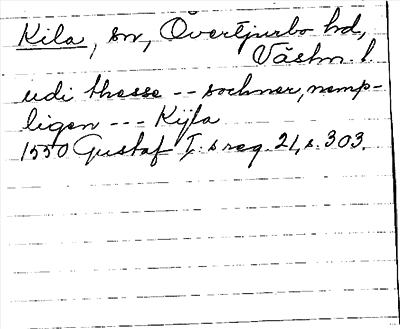 Kila, sn, Övertjurbo hd,
Västm. l.
udi thesse -- sochner, nemp-
ligen --- Kijla
1550 Gustaf I:s reg. 21, s. 303.